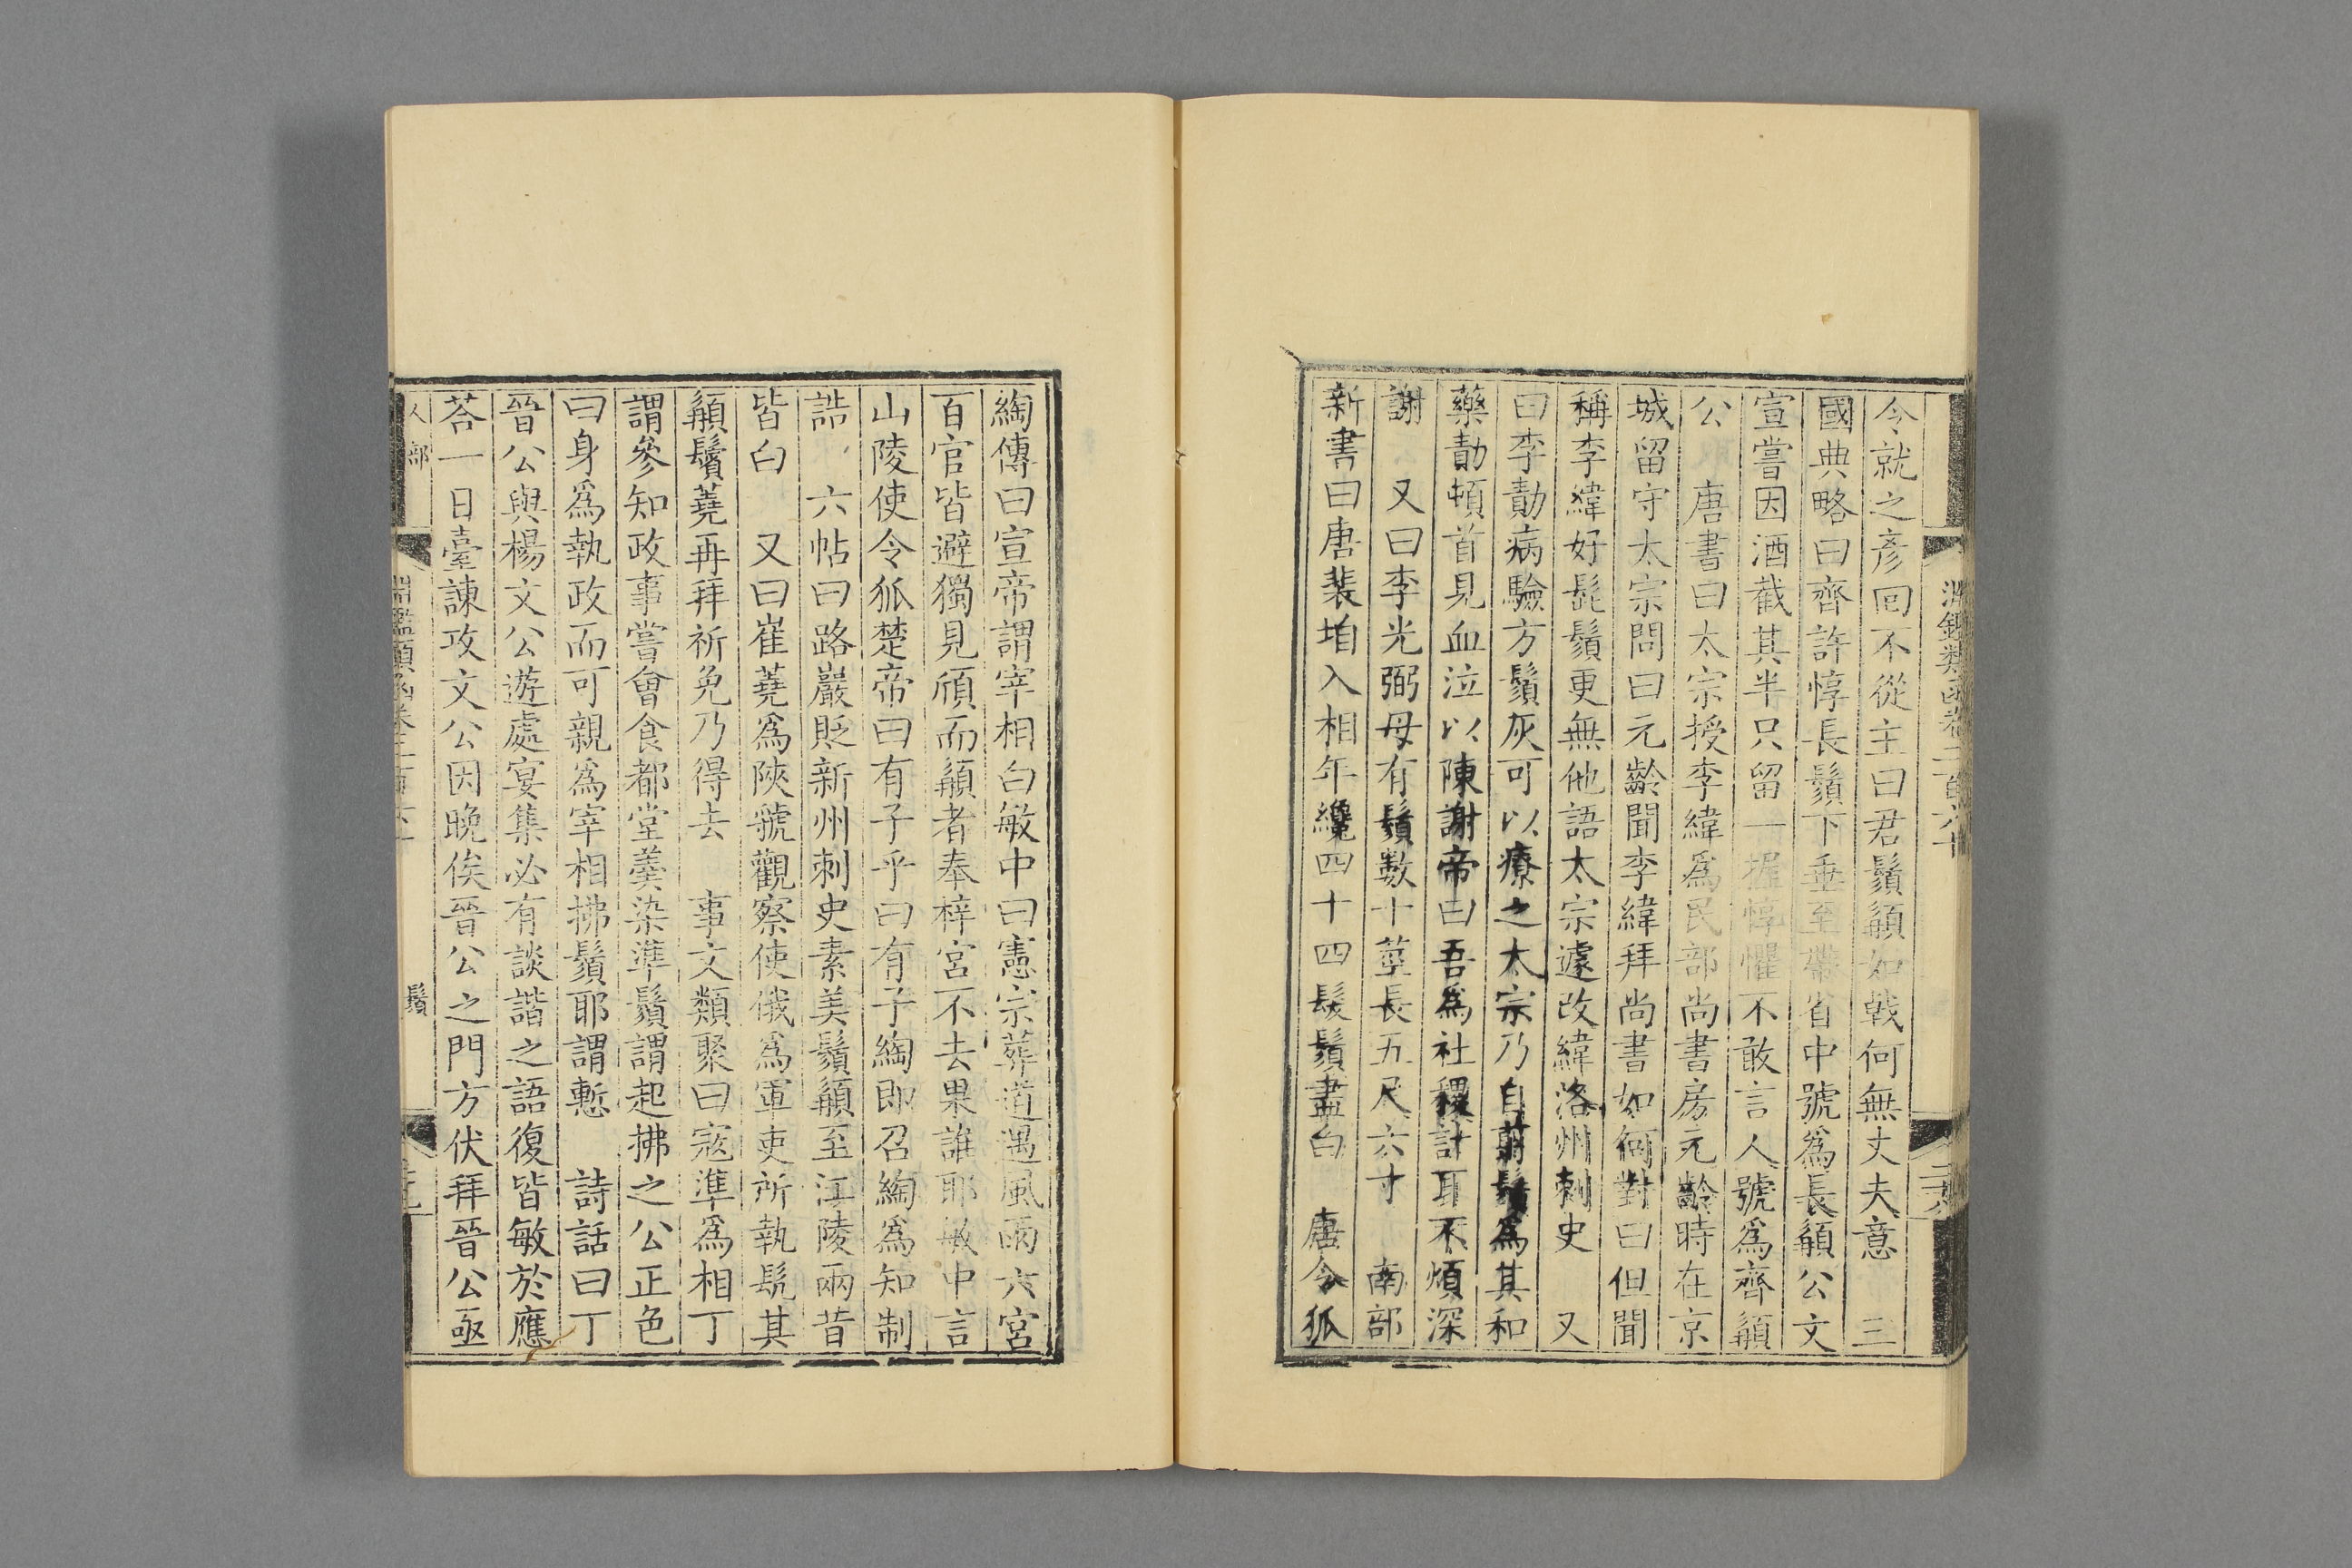 淵鑑類函卷二百六十
令就之彥回不從主曰君鬚䫇如戟何無丈夫意　三
國典略曰齊許惇長鬚下垂至帶省中號爲長䫇公文
宣嘗因酒截其半只留一握惇懼不敢言人號爲齊䫇
公　唐書曰太宗授李緯爲民部尚書房元齡時在京
城留守太宗問曰元齡聞李緯拜尚書如何對曰但聞
稱李緯好髭鬚更無他語太宗遽改緯洛州刺史　又
曰李勣病驗方鬚灰可以療之太宗乃自剪鬚爲其和
藥勣頓首見血泣以陳謝帝曰吾爲社稷計耳不煩深
謝　又曰李光弼母有鬚數十莖長五尺六寸　南部
新書曰唐裴垍入相年纔四十四髮鬚盡白　唐令狐
綯傳曰宣帝謂宰相白敏中曰憲宗葬道遇風雨六宮
百官皆避獨見頎而䫇者奉梓宮不去果誰耶敏中言
山陵使令狐楚帝曰有子乎曰有子綯即召綯爲知制
誥　六帖曰路巖貶新州刺史素美鬚䫇至江陵兩昔
皆白　又曰崔蕘爲陝虢觀察使俄爲軍吏所執髡其
䫇鬢蕘再拜祈免乃得去　事文類聚曰寇準爲相丁
謂參知政事嘗會食都堂羹染準鬚謂起拂之公正色
曰身爲執政而可親爲宰相拂鬚耶謂慙　詩話曰丁
晉公與楊文公遊處宴集必有談諧之語復皆敏於應
荅一日臺諫攻文公因晚俟晉公之門方伏拜晉公亟
人部
淵鑑類函卷二百六十
鬚